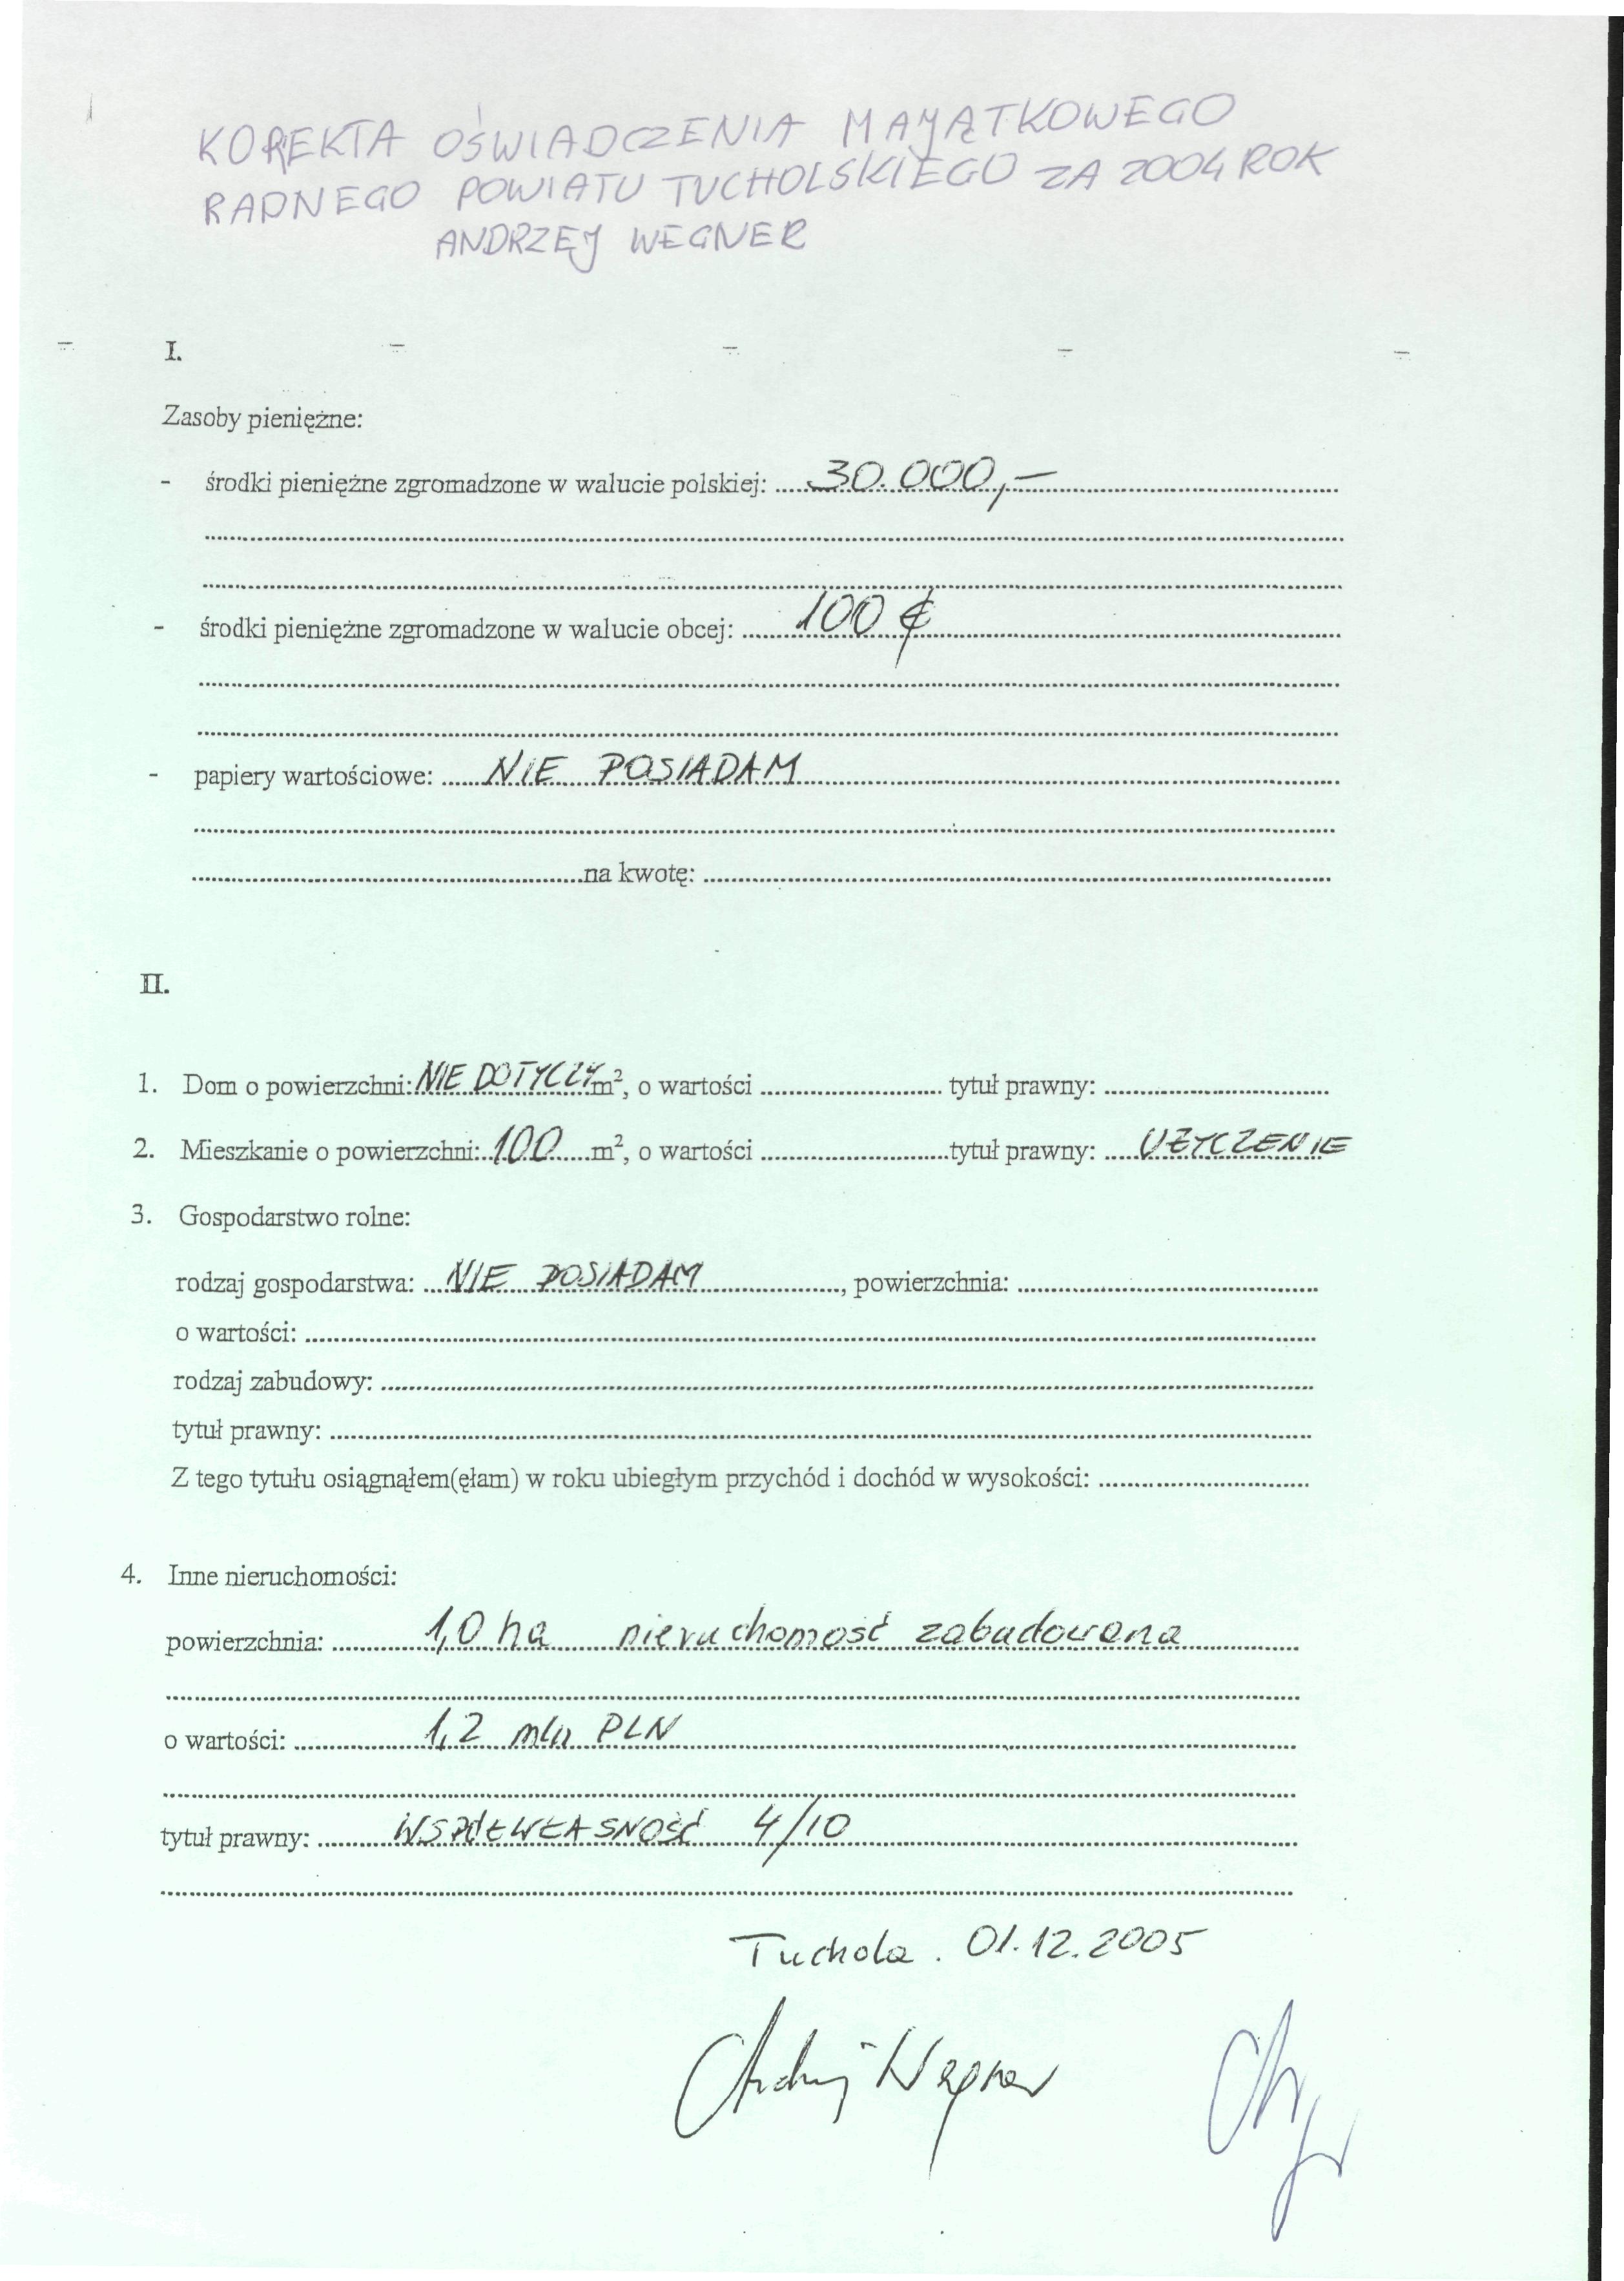 KOREKTA OŚWIADCZENIA MAJĄTKOWEGO
RADNEGO POWIATU TUCHOLSKIEGO ZA 2004 ROK
ANDRZEJ WEGNER
I.
Zasoby pieniężne:
- środki pieniężne zgromadzone w walucie polskiej: 30.000,-
- środki pieniężne zgromadzone w walucie obcej: 100 €
- papiery wartościowe: NIE POSIADAM
na kwotę:
II.
1. Dom o powierzchni: NIE DOTYCZY m², o wartości tytuł prawny:
2. Mieszkanie o powierzchni: 100 m², o wartości tytuł prawny: UŻYCZENIE
3. Gospodarstwo rolne:
rodzaj gospodarstwa: NIE POSIADAM, powierzchnia:
o wartości:
rodzaj zabudowy:
tytuł prawny:
Z tego tytułu osiągnąłem(ęłam) w roku ubiegłym przychód i dochód w wysokości:
4. Inne nieruchomości:
powierzchnia: 1,0 ha nieruchomość zabudowana
o wartości: 1,2 mln PLN
tytuł prawny: WSPÓŁWŁASNOŚĆ 4/10
Tuchola. 01.12.2005
Andrzej Wegner